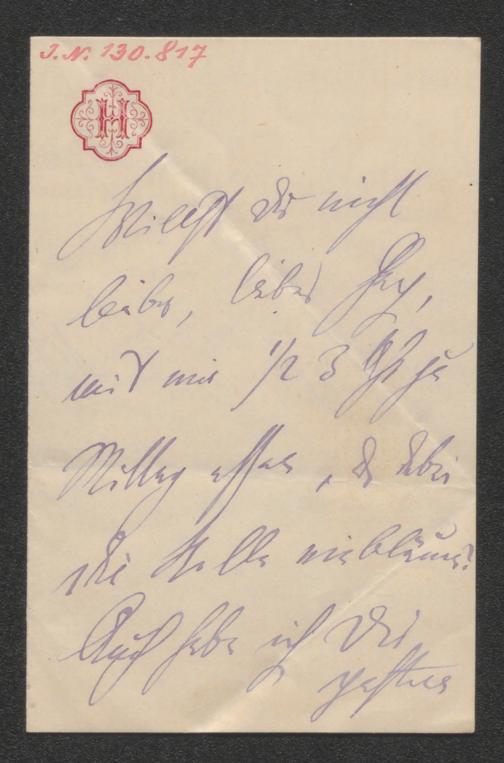 J.N. 130.817
H
Willst Du nicht
lieber, lieber
mit mir 1/2 3 Uhr zu
Mittag essen,
die Stelle
Auch habe ich Dir
gestern